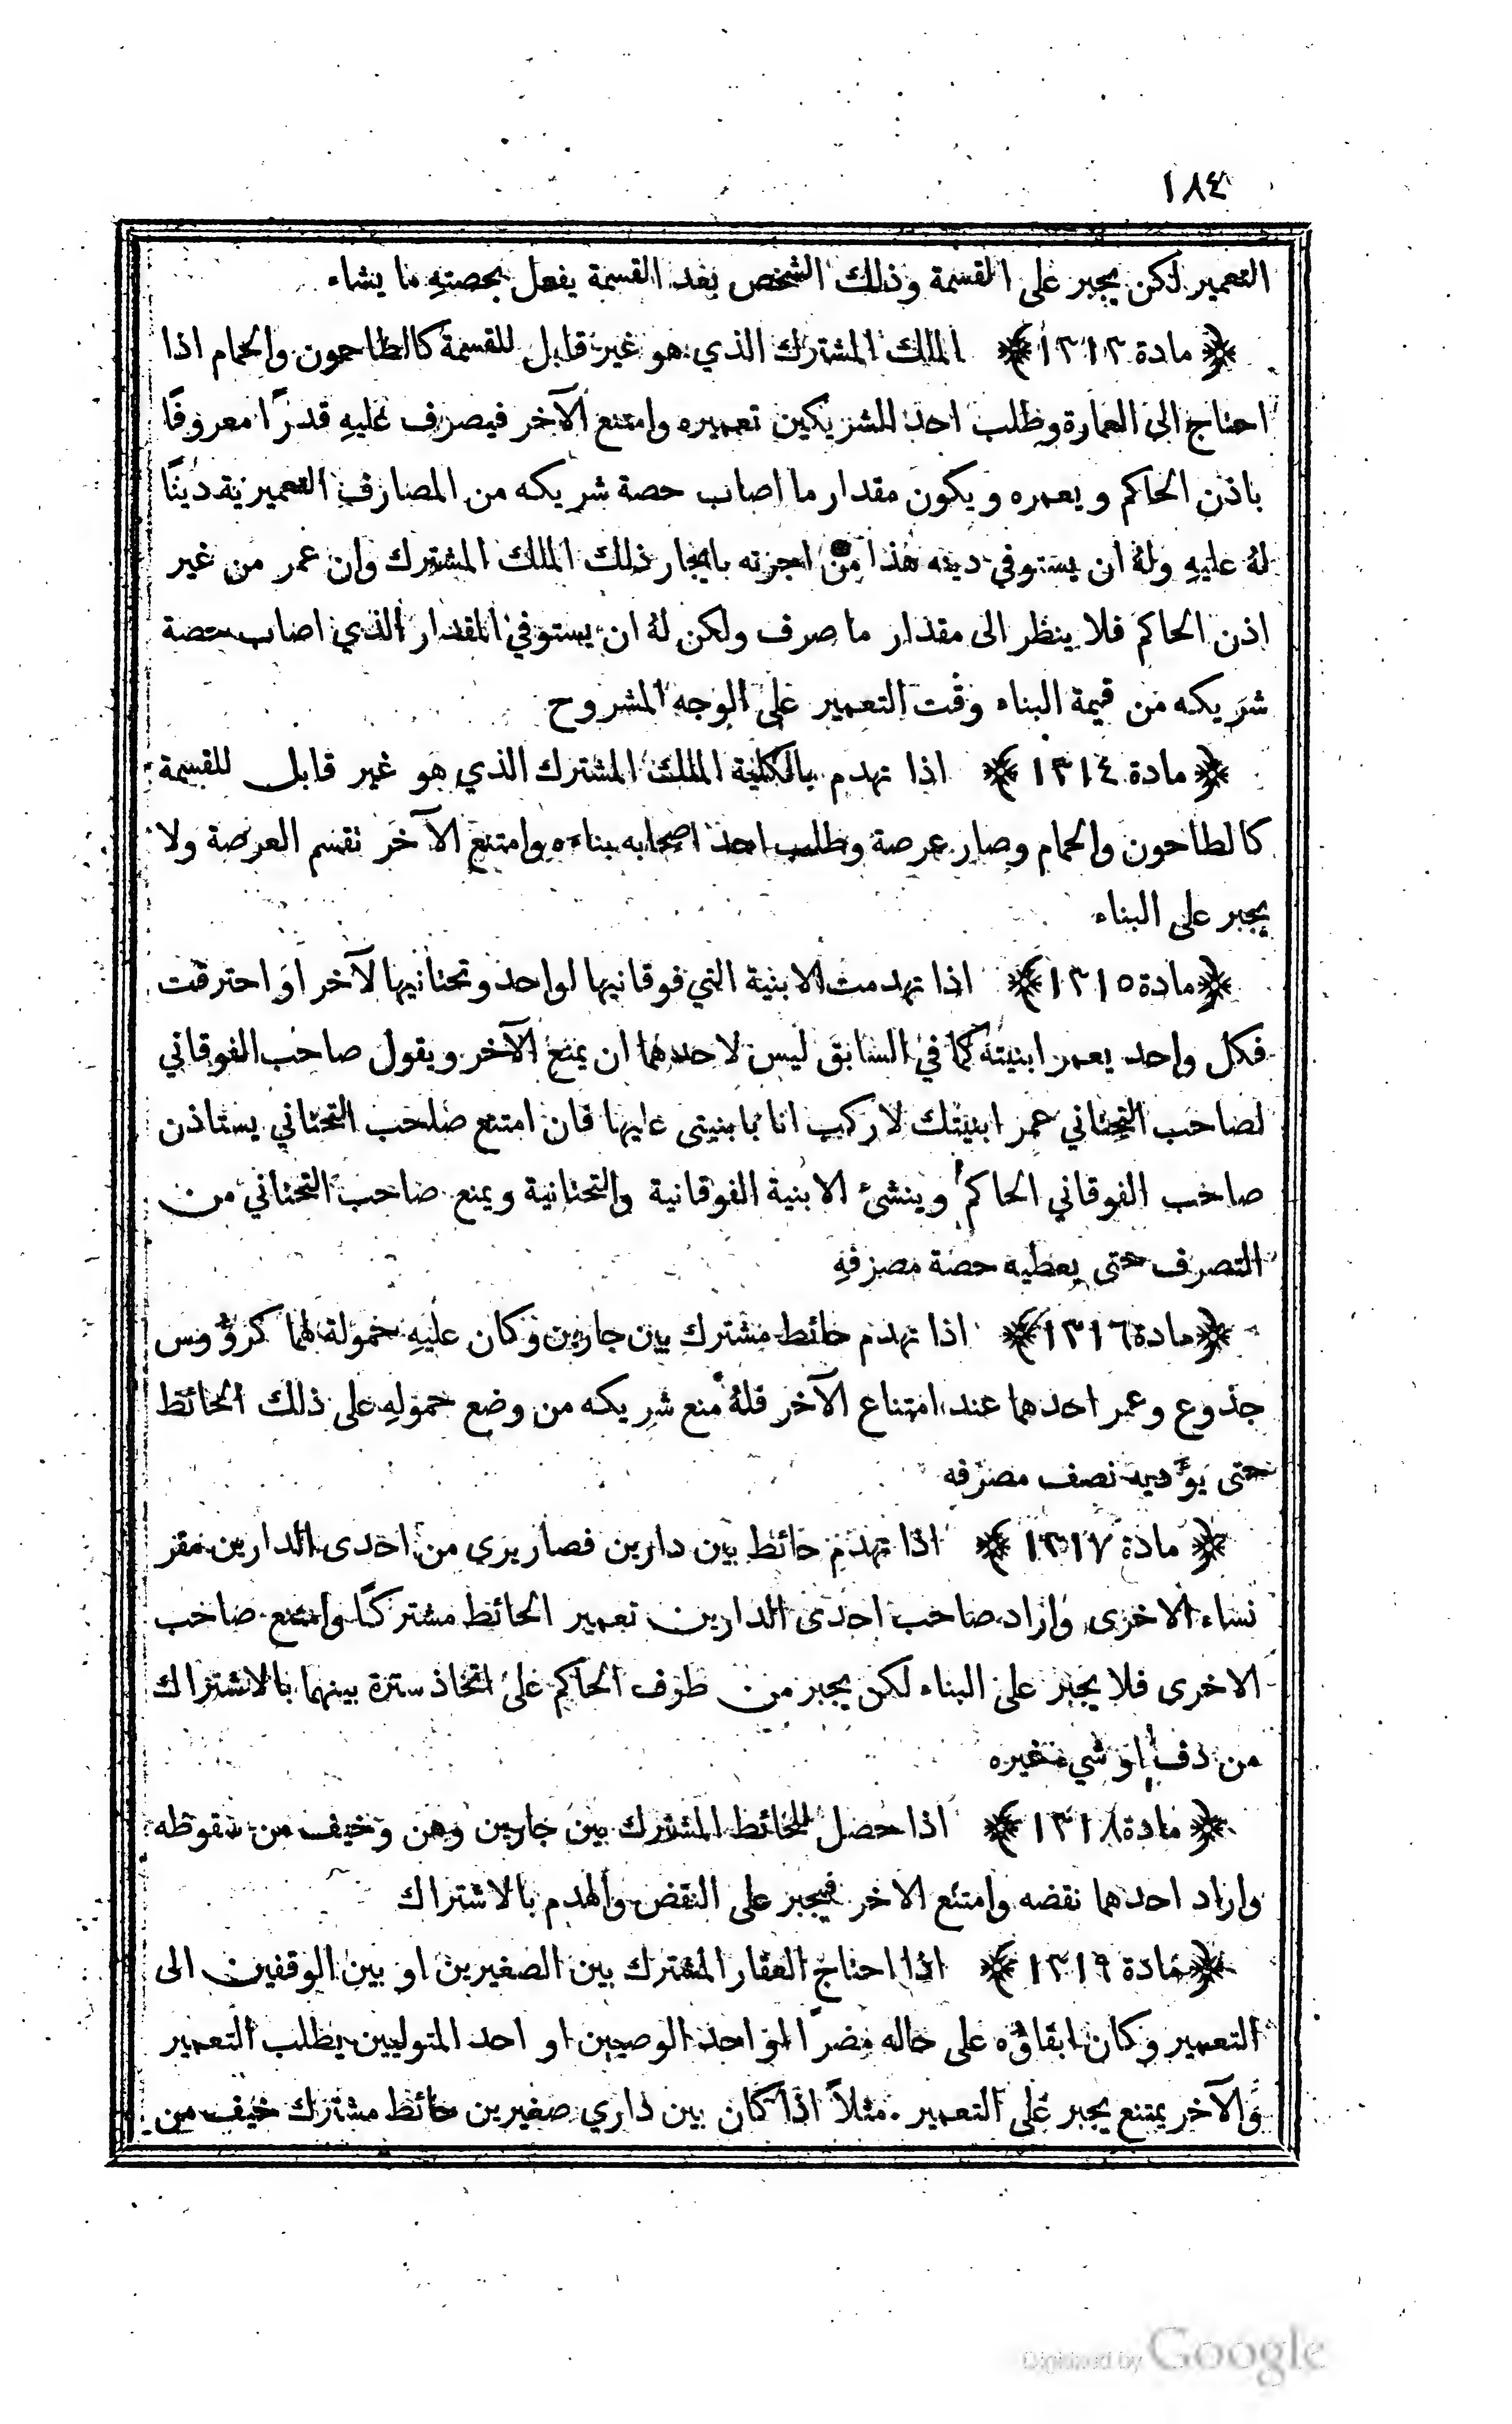 ١٨٤
التعمير لكن يجبر على القسمة وذلك الشخص بعد القسمة يفعل بحصتهِ ما يشاء
﴿ مادة ١٣١٣ ﴾ الملك المشترك الذي هو غير قابل للقسمة كالطاحون والحمام اذا
احتاج الى العمارة وطلب احد الشريكين تعميره وامتنع الآخر فيصرف عليهِ قدرًا معروفًا
باذن الحاكم ويعمره ويكون مقدار ما اصاب حصة شريكه من المصارف التعميرية دينًا
لهُ عليهِ ولهُ ان يستوفي دينه هذا من اجرته بايجار ذلك الملك المشترك وان عمر من غير
اذن الحاكم فلا ينظر الى مقدار ما صرف ولكن لهُ ان يستوفي المقدار الذي اصاب حصة
شريكه من قيمة البناء وقت التعمير على الوجه المشروح
﴿ مادة ١٣١٤ ﴾ اذا تهدم بالكلية الملك المشترك الذي هو غير قابل للقسمة
كالطاحون والحمام وصار عرصة وطلب احد اصحابه بناءه وامتنع الآخر تقسم العرصة ولا
يجبر على البناء
﴿ مادة ١٣١٥ ﴾ اذا تهدمت الابنية التي فوقانيها لواحد وتحتانيها لآخر او احترقت
فكل واحد يعمر ابنيته كما في السابق ليس لاحدهما ان يمنع الآخر ويقول صاحب الفوقاني
لصاحب التحتاني عمر ابنيتك لاركب انا بابنيتى عليها فان امتنع صاحب التحتاني يستاذن
صاحب الفوقاني الحاكم وينشئ الابنية الفوقانية والتحتانية ويمنع صاحب التحتاني من
التصرف حتى يعطيه حصة مصرفهِ
﴿ مادة ١٣١٦ ﴾ اذا تهدم حائط مشترك بين جارين وكان عليهِ حمولة لهما كرؤوس
جذوع وعمر احدهما عند امتناع الآخر فلهُ منع شريكه من وضع حمولهِ على ذلك الحائط
حتى يؤديه نصف مصرفه
﴿ مادة ١٣١٧ ﴾ اذا تهدم حائط بين دارين فصار يرى من احدى الدارين مقر
نساء الاخرى واراد صاحب احدى الدارين تعمير الحائط مشتركًا وامتنع صاحب
الاخرى فلا يجبر على البناء لكن يجبر من طرف الحاكم على اتخاذ سترة بينهما بالاشتراك
من دف او شيء غيره
﴿ مادة ١٣١٨ ﴾ اذا حصل للحائط المشترك بين جارين وهن وخيف من سقوطه
واراد احدهما نقضه وامتنع الاخر فيجبر على النقض والهدم بالاشتراك
﴿ مادة ١٣١٩ ﴾ اذا احتاج العقار المشترك بين الصغيرين او بين الوقفين الى
التعمير وكان ابقاؤه على حاله مضرًا واحد الوصيين او احد المتوليين يطلب التعمير
والآخر يمتنع يجبر على التعمير . مثلاً اذا كان بين داري صغيرين حائط مشترك خيف من
Digitized by Google